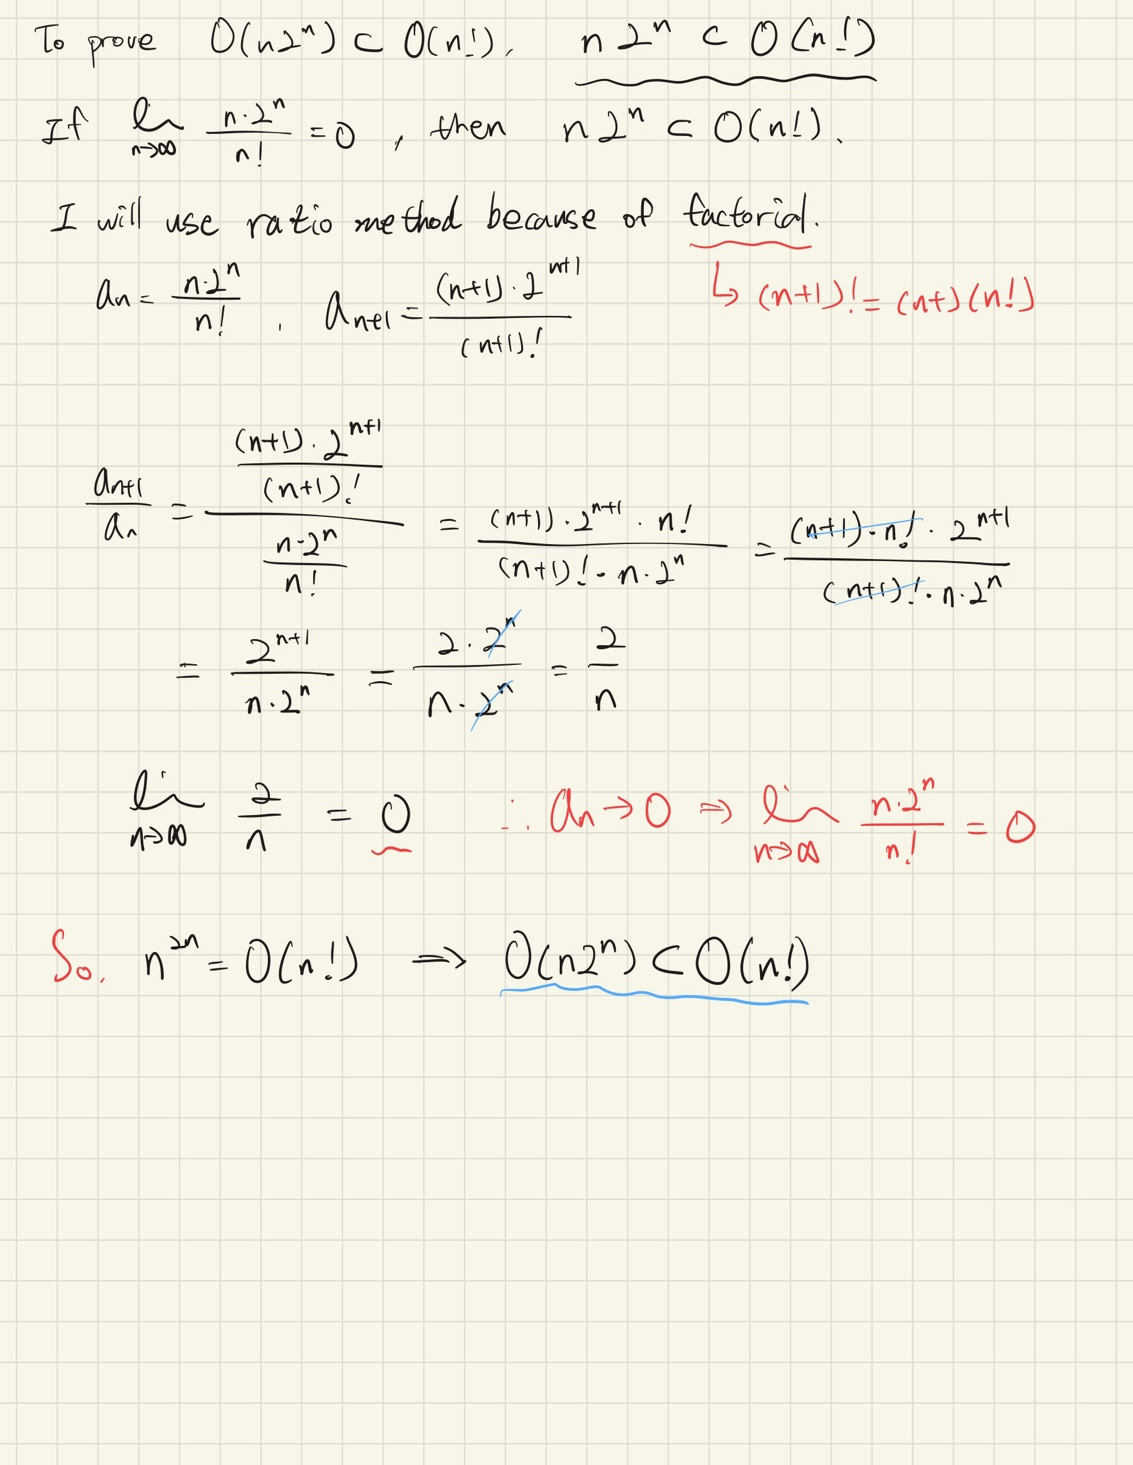 To prove O(n2ⁿ) ⊂ O(n!), n2ⁿ ⊂ O(n!)
If lim_{n→∞} (n·2ⁿ)/(n!) = 0, then n2ⁿ ⊂ O(n!).
I will use ratio method because of factorial.
aₙ = (n·2ⁿ)/(n!), aₙ₊₁ = ((n+1)·2ⁿ⁺¹)/((n+1)!)
↳ (n+1)! = (n+)(n!)
aₙ₊₁/aₙ = (((n+1)·2ⁿ⁺¹)/((n+1)!))/((n·2ⁿ)/(n!)) = ((n+1)·2ⁿ⁺¹·n!)/((n+1)!·n·2ⁿ) = ((n+1)·n!·2ⁿ⁺¹)/((n+1)!·n·2ⁿ)
= (2ⁿ⁺¹)/(n·2ⁿ) = (2·2ⁿ)/(n·2ⁿ) = 2/n
lim_{n→∞} 2/n = 0 ∴ aₙ→0 ⇒ lim_{n→∞} (n·2ⁿ)/(n!) = 0
So, n²ⁿ = O(n!) ⇒ O(n2ⁿ) ⊂ O(n!)